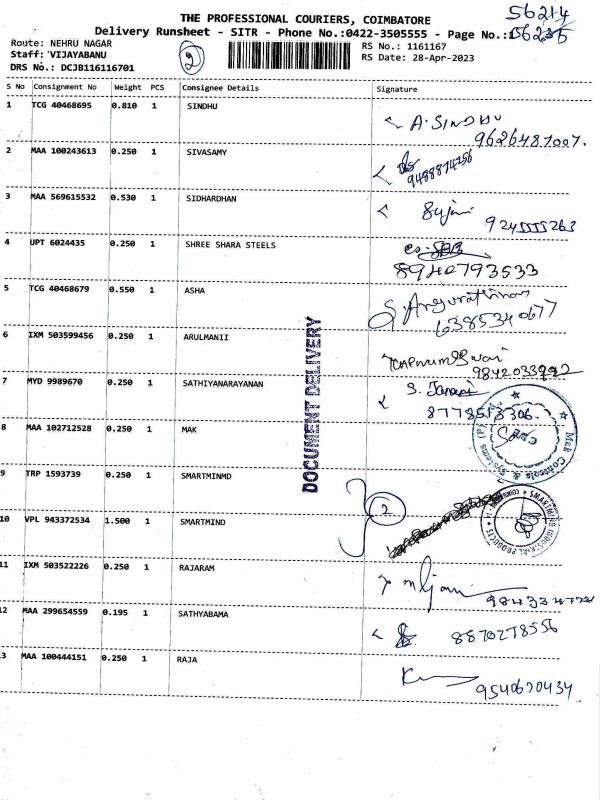 56214
THE PROFESSIONAL COURIERS, COIMBATORE
Delivery Runsheet - SITR - Phone No.:0422-3505555 - Page No.:1
Route: NEHRU NAGAR
RS No.: 1161167
Staff: VIJAYABANU
2
RS Date: 28-Apr-2023
DRS No.: DCJB116116701
S No Consignment No Weight PCS Consignee Details Signature
1 TCG 40468695 0.810 1 SINDHU
A. SINDHU
9626487007.
2 MAA 100243613 0.250 1 SIVASAMY
3 MAA 569615532 0.530 1 SIDHARDHAN
4 UPT 6024435 0.250 1 SHREE SHARA STEELS
8940793533
5 TCG 40468679 0.550 1 ASHA
6385340677
6 IXM 503599456 0.250 1 ARULMANII
7 MYD 9989670 0.250 1 SATHIYANARAYANAN
S. Janani
8778513306.
8 MAA 102712528 0.250 1 MAK
Mak Controls & Systems (P)
9 TRP 1593739 0.250 1 SMARTMINMD
2
10 VPL 943372534 1.500 1 SMARTMIND
SMARTMIND INDUSTRIAL PRODUCTS
11 IXM 503522226 0.250 1 RAJARAM
12 MAA 299654559 0.195 1 SATHYABAMA
8870278556
13 MAA 100444151 0.250 1 RAJA
9540670434
DOCUMENT DELIVERY